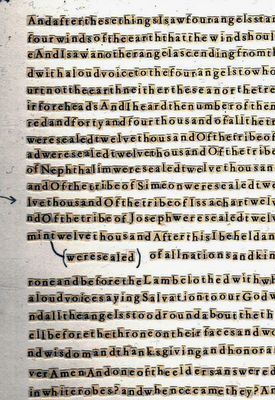 AndafterthesethingsIsawfourangelssta
fourwindsoftheearththatthewindshoul
eAndIsawanotherangelascendingfromt
dwithaloudvoicetothefourangelstowho
urtnottheearthneithertheseanorthetre
irforeheadsAndIheardthenumberofthem
redandfortyandfourthousandofallthetr
weresealedtwelvethousandOfthetribeof
adweresealedtwelvethousandOfthetribe
ofNephthalimweresealedtwelvethousan
andOfthetribeofSimeonweresealedtw
lvethousandOfthetribeofIssachartwelv
ndOfthetribeofJosephweresealedtwelv
mintwelvethousandAfterthisIbeheldan
(weresealed) ofallnationsandkin
roneandbeforetheLambclothedwithwh
aloudvoicesayingSalvationtoourGodw
ndalltheangelsstoodroundaboutheth
ellbeforethethroneontheirfacesandwo
ndwisdomandthanksgivingandhonora
verAmenAndoneoftheeldersanswered
inwhiterobes?andwhencecamethey?An